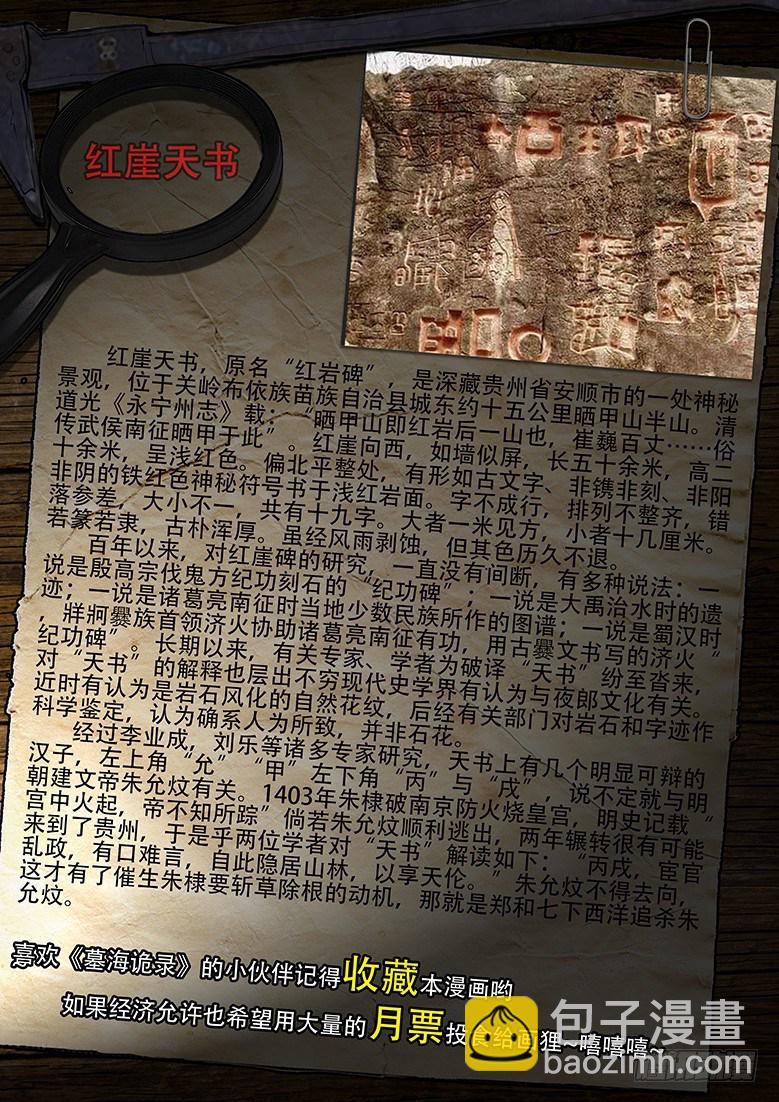 红崖天书
红崖天书，原名“红岩碑”，是深藏贵州省安顺市的一处神秘
景观，位于关岭布依族苗族自治县城东约十五公里晒甲山半山。清
道光《永宁州志》载：“晒甲山即红岩后一山也，崔巍百丈……俗
传武侯南征晒甲于此”。红崖向西，如墙似屏，长五十余米，高二
十余米，呈浅红色。偏北平整处，有形如古文字、非镌非刻、非阳
非阴的铁红色神秘符号书于浅红岩面。字不成行，排列不整齐，错
落参差，大小不一，共有十九字。大者一米见方，小者十几厘米。
若篆若隶，古朴浑厚。虽经风雨剥蚀，但其色历久不退。
百年以来，对红崖碑的研究，一直没有间断，有多种说法：一
说是殷高宗伐鬼方纪功刻石的“纪功碑”；一说是大禹治水时的遗
迹；一说是诸葛亮南征时当地少数民族所作的图谱；一说是蜀汉时
，牂牁爨族首领济火协助诸葛亮南征有功，用古爨文书写的济火“
纪功碑”。长期以来，有关专家、学者为破译“天书”纷至沓来，
对“天书”的解释也层出不穷现代史学界有认为与夜郎文化有关。
近时有认为是岩石风化的自然花纹，后经有关部门对岩石和字迹作
科学鉴定，认为确系人为所致，并非石花。
经过李业成，刘乐等诸多专家研究，天书上有几个明显可辩的
汉子，左上角“允”“甲”左下角“丙”与“戌”，说不定就与明
朝建文帝朱允炆有关。1403年朱棣破南京防火烧皇宫，明史记载“
宫中火起，帝不知所踪”倘若朱允炆顺利逃出，两年辗转很有可能
来到了贵州，于是乎两位学者对“天书”解读如下：“丙戌，宦官
乱政，有口难言，自此隐居山林，以享天伦。”朱允炆不得去向，
这才有了催生朱棣要斩草除根的动机，那就是郑和七下西洋追杀朱
允炆。
喜欢《墓海诡录》的小伙伴记得收藏本漫画哟
如果经济允许也希望用大量的月票投食给画狸~嘻嘻嘻~
包子漫畫
baozimh.com